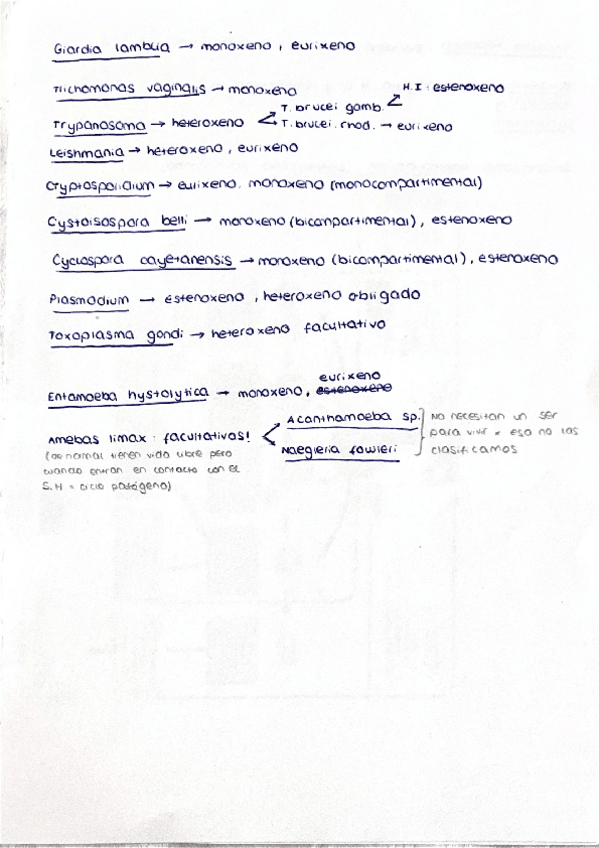 Giardia lamblia → monoxeno, eurixeno
Trichomonas vaginalis → monoxeno
H.I: estenoxeno
T. brucei gamb.
Trypanosoma → heteroxeno
T. brucei rhod. → eurixeno
Leishmania → heteroxeno, eurixeno
Cryptosporidium → eurixeno, monoxeno (monocompartimental)
Cystoisospora belli → monoxeno (bicompartimental), estenoxeno
Cyclospora cayetanensis → monoxeno (bicompartimental), estenoxeno
Plasmodium → estenoxeno, heteroxeno obligado
Toxoplasma gondi → heteroxeno facultativo
eurixeno
Entamoeba hystolytica → monoxeno, estenoxeno
Acanthamoeba sp.
Amebas limax: facultativos!
Naegleria fowleri
No necesitan un ser
para vivir x eso no las
clasificamos
(de normal tienen vida libre pero
cuando entran en contacto con el
S.H = ciclo patógeno)